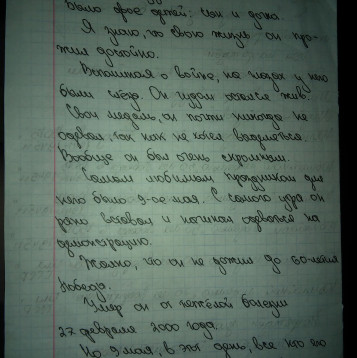 было двое детей: сын и дочка.
Я знаю, что свою жизнь он про-
жил достойно.
Вспоминая о войне, на глазах у него
были слёзы. Он чудом остался жив.
Свои медали, он почти никогда не
одевал, так как не хотел выделяться.
Вообще он был очень скромным.
Самым любимым праздником для
него было 9-ое мая. С самого утра он
рано вставал и начинал одеваться на
демонстрацию.
Жалко, что он не дожил до 60-летия
Победы.
Умер он от тяжёлой болезни
27 февраля 2000 года.
Но 9 мая, в этот день, все кто его